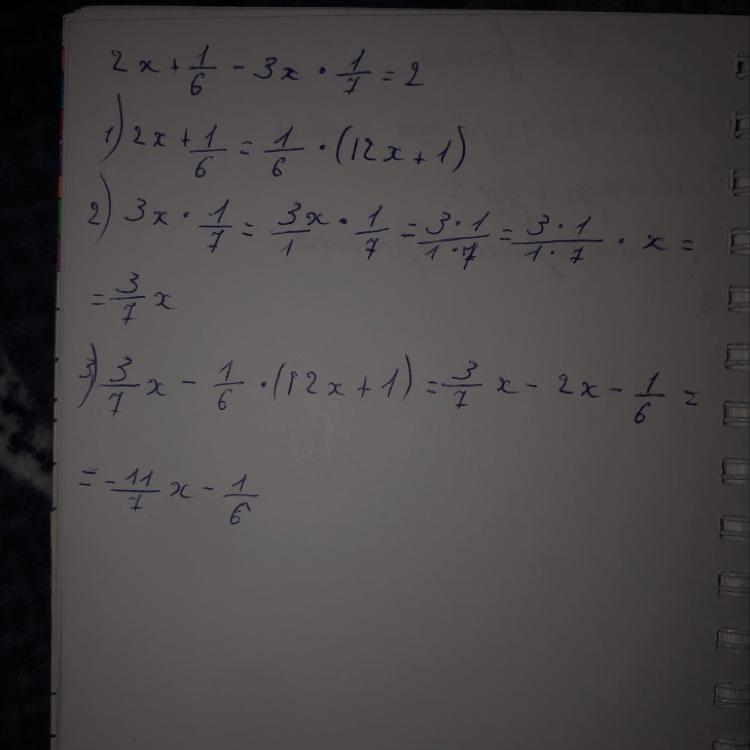 2x + 1/6 - 3x · 1/7 = 2
1) 2x + 1/6 = 1/6 · (12x + 1)
2) 3x · 1/7 = 3x/1 · 1/7 = 3·1/1·7 = 3·1/1·7 · x =
= 3/7 x
3) 3/7 x - 1/6 · (12x + 1) = 3/7 x - 2x - 1/6 =
= -11/7 x - 1/6